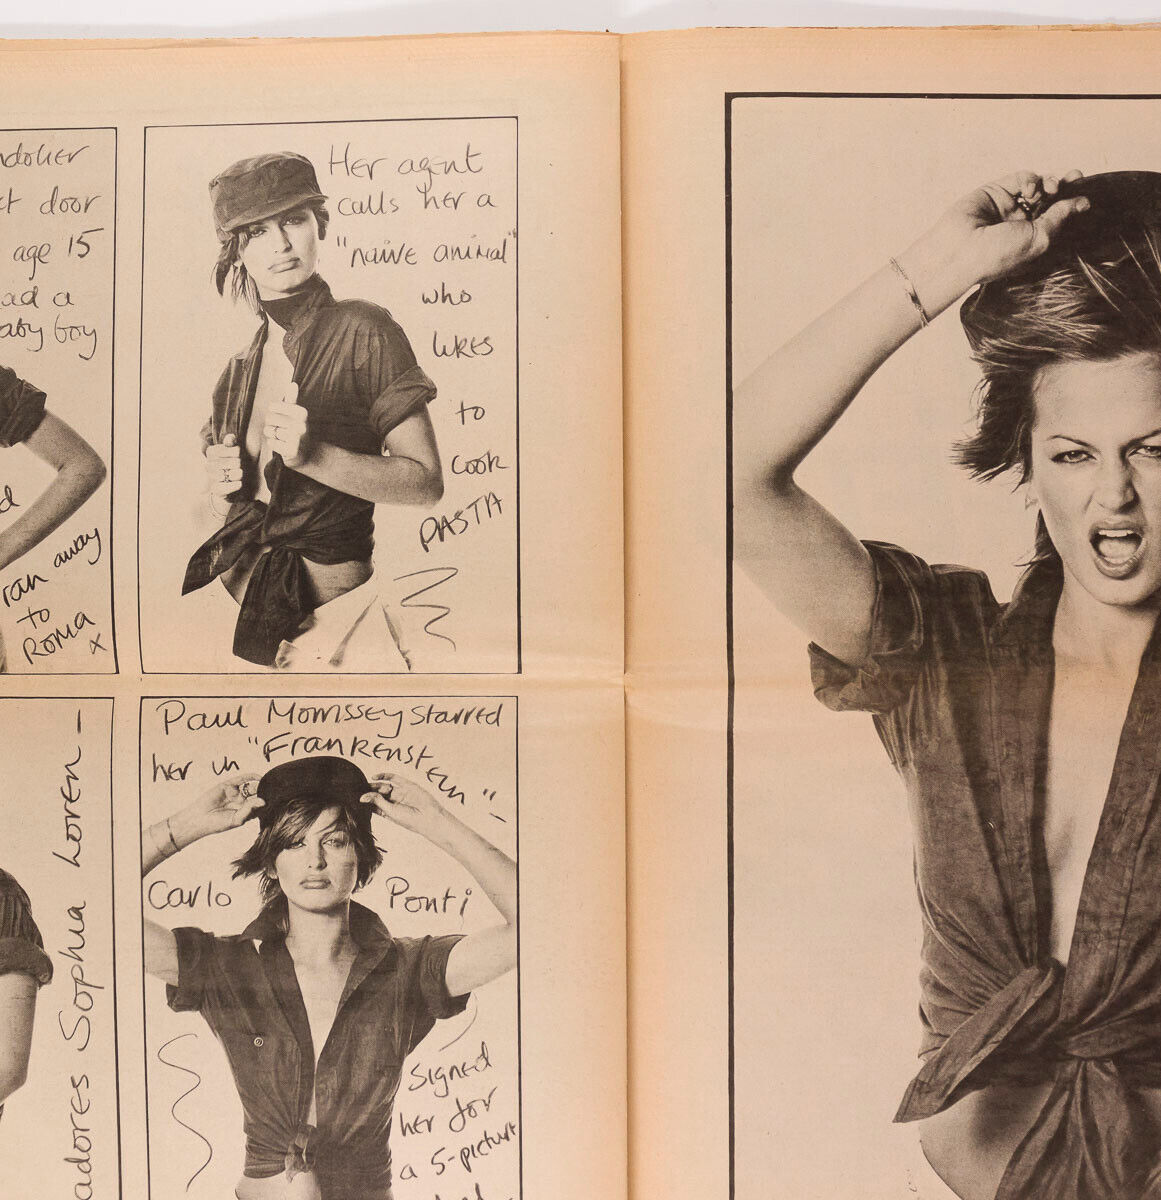 door
age 15
ad a
aby boy
ran away
to
Roma
x
Her agent
calls her a
"naive animal"
who
likes
to
cook
PASTA
adores Sophia Loren -
Paul Morrissey starred
her in "Frankenstein",
Carlo Ponti
signed
her for
a 5-picture